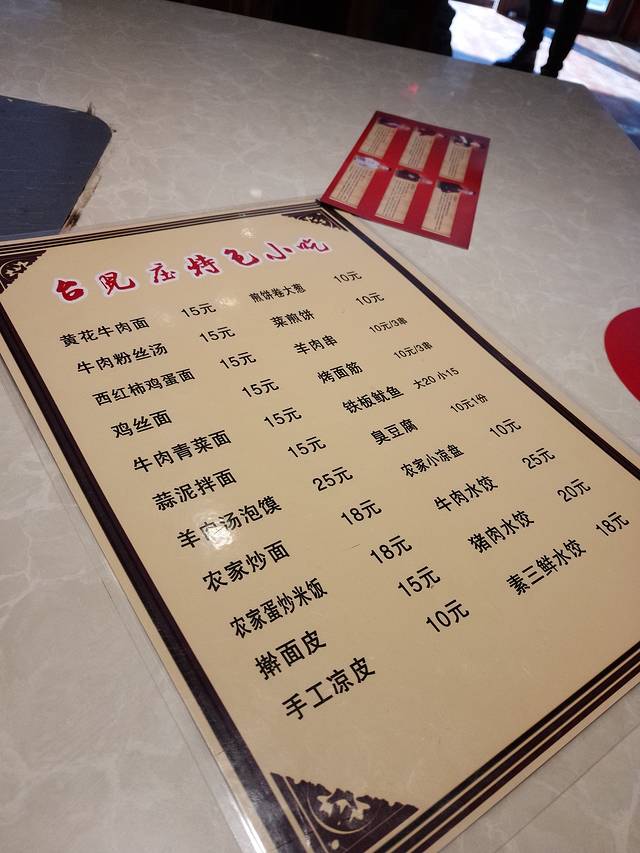 台兒庄特色小吃
黄花牛肉面 15元 煎饼卷大葱 10元
牛肉粉丝汤 15元 菜煎饼 10元
西红柿鸡蛋面 15元 羊肉串 10元/3串
鸡丝面 15元 烤面筋 10元/3串
牛肉青菜面 15元 铁板鱿鱼 大20 小15
蒜泥拌面 15元 臭豆腐 10元1份
羊肉汤泡馍 25元 农家小凉盘 10元
农家炒面 18元 牛肉水饺 25元
农家蛋炒米饭 18元 猪肉水饺 20元
擀面皮 15元 素三鲜水饺 18元
手工凉皮 10元